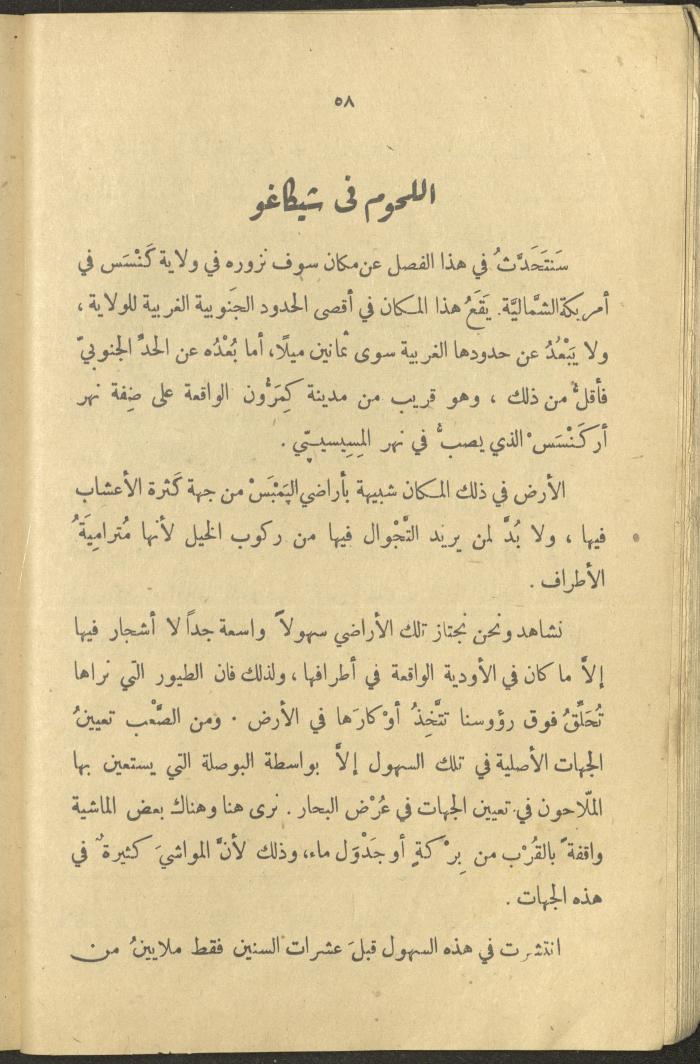 ٥٨
اللحوم فى شيكاغو
سَنتَحَدَّثُ في هذا الفصل عن مكان سوف نزوره في ولاية كَنْسَس في
أمريكة الشَّماليَّة. يَقَعُ هذا المكان في أقصى الحدود الجَنوبية الغربية للولاية ،
ولا يَبْعُدُ عن حدودها الغربية سوى ثمانين ميلًا، أما بُعْدُه عن الحدِّ الجنوبيّ
فأقلُّ من ذلك ، وهو قريب من مدينة كِمَرُّون الواقعة على ضِفة نهر
أركَنْسَسْ الذي يصبُّ في نهر المِسِيسيبّي .
الأرض في ذلك المكان شبيهة بأراضي اليَمْبَسْ من جهة كَثرة الأعشاب
فيها ، ولا بُدَّ لمن يريد التَّجْوال فيها من ركوب الخيل لأنها مُتراميَةُ
الأطراف .
نشاهد ونحن نجتاز تلك الأراضي سهولاً واسعة جداً لا أشجار فيها
إلاَّ ما كان في الأودية الواقعة في أطرافها ، ولذلك فان الطيور التي نراها
تُحَلِّقُ فوق رؤوسنا تتَّخِذُ أوْكارَها في الأرض . ومن الصَّعْب تعيينُ
الجهات الأصلية في تلك السهول إلاَّ بواسطة البوصلة التي يستعين بها
الملّاحون في تعيين الجهات في عُرْض البحار . نرى هنا وهناك بعض الماشية
واقفةً بالقُرْب من بِرْكةٍ أو جَدْوَل ماء، وذلك لأنَّ المواشيَ كثيرةٌ في
هذه الجهات .
انتشرت في هذه السهول قبلَ عشرات السنين فقط ملايينُ من